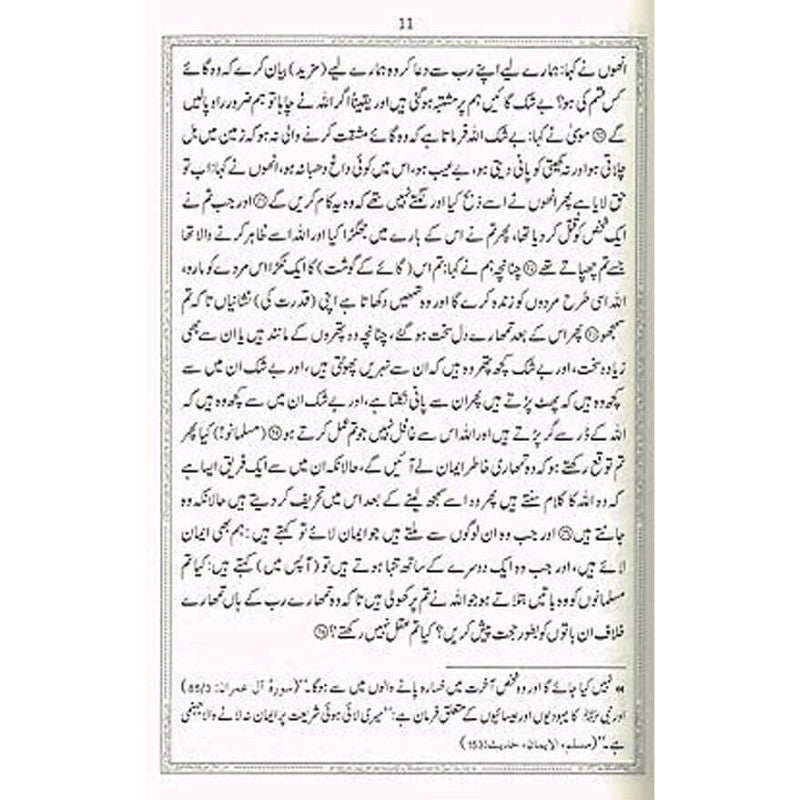 11
انھوں نے کہا: ہمارے لیے اپنے رب سے دعا کر وہ ہمارے لیے (مزید) بیان کرے کہ وہ گائے
کس قسم کی ہو؟ بے شک گائیں ہم پر مشتبہ ہو گئی ہیں اور یقیناً اگر اللہ نے چاہا تو ہم ضرور راہ پالیں
گے ۷۰ موسیٰ نے کہا: بے شک اللہ فرماتا ہے کہ وہ گائے مشقت کرنے والی نہ ہو کہ زمین میں ہل
چلاتی ہو اور نہ کھیتی کو پانی دیتی ہو، بے عیب ہو، اس میں کوئی داغ دھبا نہ ہو، انھوں نے کہا: اب تو
حق لایا ہے پھر انھوں نے اسے ذبح کیا اور لگتے نہیں تھے کہ وہ یہ کام کریں گے ۷۱ اور جب تم نے
ایک شخص کو قتل کر دیا تھا، پھر تم نے اس کے بارے میں جھگڑا کیا اور اللہ اسے ظاہر کرنے والا تھا
جسے تم چھپاتے تھے ۷۲ چنانچہ ہم نے کہا: تم اس (گائے کے گوشت) کا ایک ٹکڑا اس مردے کو مارو،
اللہ اسی طرح مردوں کو زندہ کرے گا اور وہ تمھیں دکھاتا ہے اپنی (قدرت کی) نشانیاں تاکہ تم
سمجھو ۷۳ پھر اس کے بعد تمھارے دل سخت ہو گئے، چنانچہ وہ پتھروں کے مانند ہیں یا ان سے بھی
زیادہ سخت، اور بے شک کچھ پتھر وہ ہیں کہ ان سے نہریں پھوٹتی ہیں، اور بے شک ان میں سے
کچھ وہ ہیں کہ پھٹ پڑتے ہیں پھر ان سے پانی نکلتا ہے، اور بے شک ان میں سے کچھ وہ ہیں کہ
اللہ کے ڈر سے گر پڑتے ہیں اور اللہ اس سے غافل نہیں جو تم عمل کرتے ہو ۷۴ (مسلمانو!) کیا پھر
تم توقع رکھتے ہو کہ وہ تمھاری خاطر ایمان لے آئیں گے، حالانکہ ان میں سے ایک فریق ایسا ہے
کہ وہ اللہ کا کلام سنتے ہیں پھر وہ اسے سمجھ لینے کے بعد اس میں تحریف کر دیتے ہیں حالانکہ وہ
جانتے ہیں ۷۵ اور جب وہ ان لوگوں سے ملتے ہیں جو ایمان لائے تو کہتے ہیں: ہم بھی ایمان
لائے ہیں، اور جب وہ ایک دوسرے کے ساتھ تنہا ہوتے ہیں تو (آپس میں) کہتے ہیں: کیا تم
مسلمانوں کو وہ باتیں بتلاتے ہو جو اللہ نے تم پر کھولی ہیں تاکہ وہ تمھارے رب کے ہاں تمھارے
خلاف ان باتوں کو بطور حجت پیش کریں؟ کیا تم عقل نہیں رکھتے؟ ۷۶
◄◄ نہیں کیا جائے گا اور وہ شخص آخرت میں خسارہ پانے والوں میں سے ہوگا۔“ (سورۂ آل عمران: 85/3)
اور نبی ﷺ کا یہودیوں اور عیسائیوں کے متعلق فرمان ہے: ”میری لائی ہوئی شریعت پر ایمان نہ لانے والا جہنمی
ہے۔“ (مسلم، الایمان، حدیث: 153)